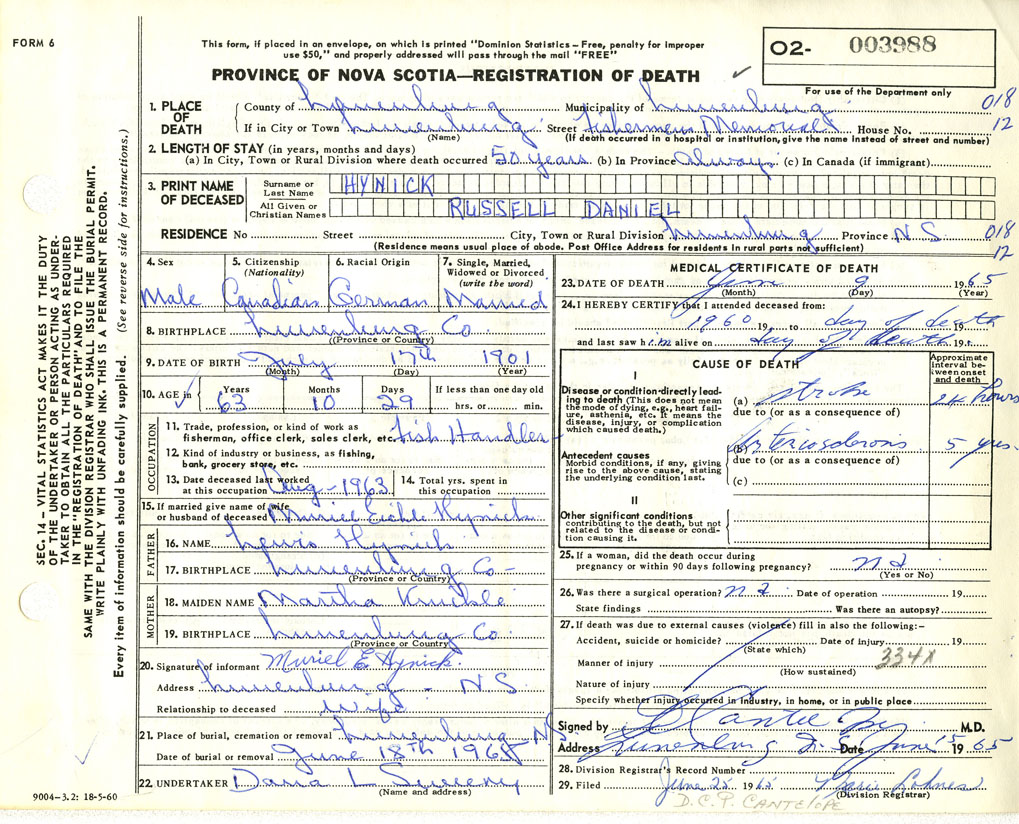 FORM 6
This form, if placed in an envelope, on which is printed "Dominion Statistics – Free, penalty for improper
use $50," and properly addressed will pass through the mail "FREE"
O2- 003988
PROVINCE OF NOVA SCOTIA—REGISTRATION OF DEATH ✓
For use of the Department only
1. PLACE OF DEATH
County of Lunenburg Municipality of Lunenburg 018
If in City or Town Lunenburg Street Fishermens Memorial House No. 12
(Name) (If death occurred in a hospital or institution, give the name instead of street and number)
2. LENGTH OF STAY (in years, months and days)
(a) In City, Town or Rural Division where death occurred 50 years (b) In Province Always (c) In Canada (if immigrant)
3. PRINT NAME OF DECEASED
Surname or Last Name HYNICK
All Given or Christian Names RUSSELL DANIEL
RESIDENCE No Street City, Town or Rural Division Lunenburg Province N S. 018
(Residence means usual place of abode. Post Office Address for residents in rural parts not sufficient) 12
4. Sex Male
5. Citizenship (Nationality) Canadian
6. Racial Origin German
7. Single, Married, Widowed or Divorced (write the word) Married
8. BIRTHPLACE Lunenburg Co.
(Province or Country)
9. DATE OF BIRTH July 17th 1901
(Month) (Day) (Year)
10. AGE in ✓ Years 63 Months 10 Days 29 If less than one day old hrs. or min.
OCCUPATION
11. Trade, profession, or kind of work as
fisherman, office clerk, sales clerk, etc. Fish Handler
12. Kind of industry or business, as fishing,
bank, grocery store, etc.
13. Date deceased last worked at this occupation Aug - 1963
14. Total yrs. spent in this occupation
15. If married give name of wife
or husband of deceased Muriel Eickle Hynick
FATHER
16. NAME Lewis Hynick
17. BIRTHPLACE Lunenburg Co -
(Province or Country)
MOTHER
18. MAIDEN NAME Martha Knickle
19. BIRTHPLACE Lunenburg Co.
(Province or Country)
20. Signature of informant Muriel E. Hynick.
Address Lunenburg - N S.
Relationship to deceased wife
21. Place of burial, cremation or removal Lunenburg NS
Date of burial or removal June 18th 1965
22. UNDERTAKER Dana L Sweeny
(Name and address)
9004-3.2: 18-5-60
MEDICAL CERTIFICATE OF DEATH
23. DATE OF DEATH 1965
(Month) (Day) (Year)
24. I HEREBY CERTIFY that I attended deceased from:
1960 19 to day of death 19
and last saw him alive on day of death 19
CAUSE OF DEATH
Approximate interval between onset and death
I
Disease or condition directly leading to death (This does not mean the mode of dying, e.g., heart failure, asthenia, etc. It means the disease, injury, or complication which caused death.)
(a) stroke 24 hours
due to (or as a consequence of)
Antecedent causes
Morbid conditions, if any, giving rise to the above cause, stating the underlying condition last.
(b) 5 yrs.
due to (or as a consequence of)
(c)
II
Other significant conditions
contributing to the death, but not related to the disease or condition causing it.
25. If a woman, did the death occur during
pregnancy or within 90 days following pregnancy?
(Yes or No)
26. Was there a surgical operation? Date of operation 19
State findings Was there an autopsy?
27. If death was due to external causes (violence) fill in also the following:–
Accident, suicide or homicide? Date of injury 19
(State which)
Manner of injury 334X
(How sustained)
Nature of injury
Specify whether injury occurred in industry, in home, or in public place
Signed by M.D.
Address Lunenburg N. S. Date June 15 1965
28. Division Registrar's Record Number
29. Filed June 25 1965 Marie Lohnes
(Division Registrar)
D.C.P. CANTELOPE
SEC. 14 – VITAL STATISTICS ACT MAKES IT THE DUTY
OF THE UNDERTAKER OR PERSON ACTING AS UNDER-
TAKER TO OBTAIN ALL THE PARTICULARS REQUIRED
IN THE "REGISTRATION OF DEATH" AND TO FILE THE
SAME WITH THE DIVISION REGISTRAR WHO SHALL ISSUE THE BURIAL PERMIT.
WRITE PLAINLY WITH UNFADING INK. THIS IS A PERMANENT RECORD.
Every item of information should be carefully supplied. (See reverse side for instructions.)